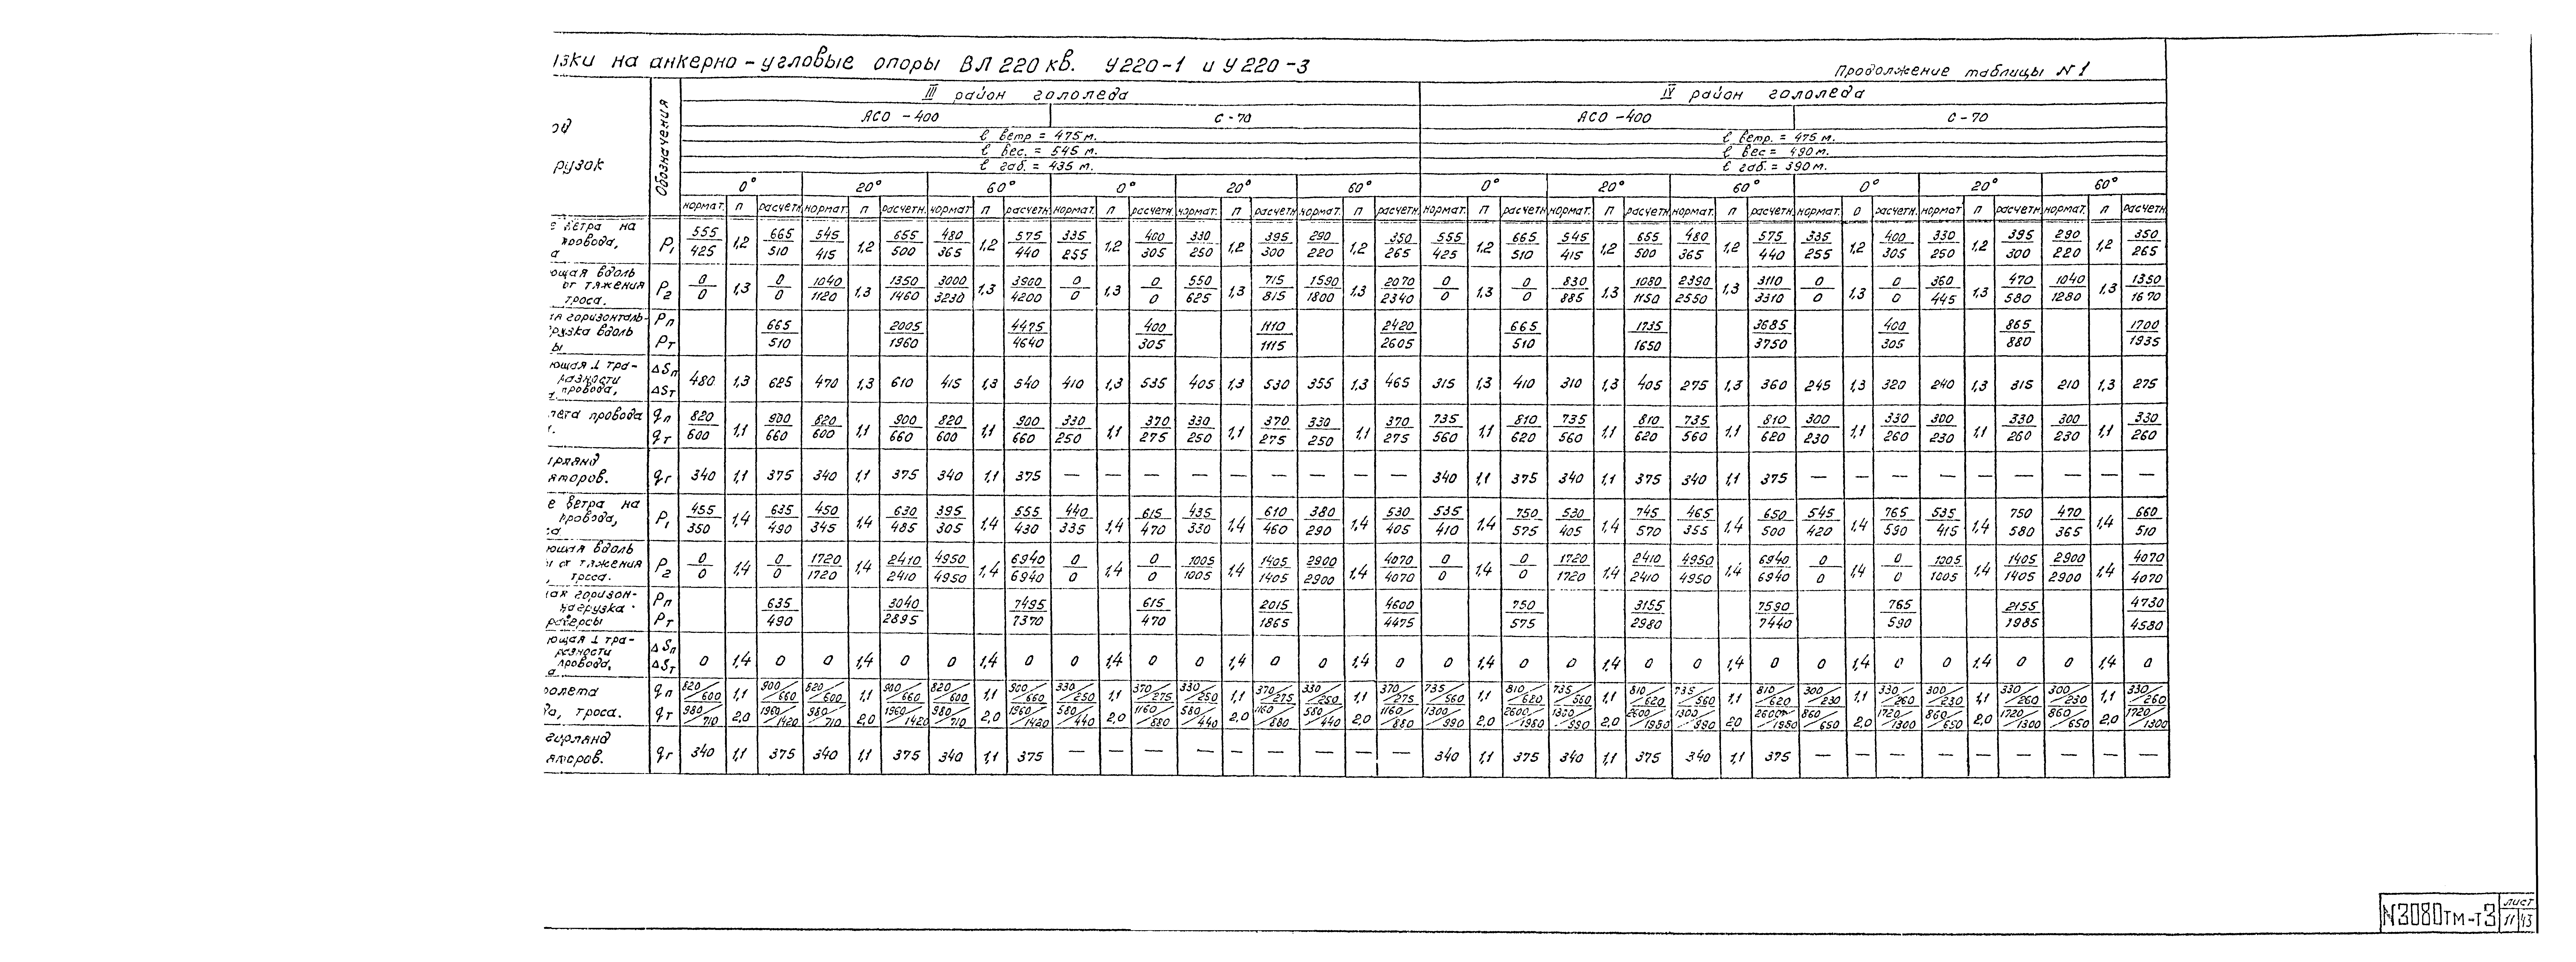 зки на анкерно-угловые опоры ВЛ 220 кв. У220-1 и У220-3
Продолжение таблицы N 1
од
рузок
Обозначения
III район гололеда
IV район гололеда
АСО-400 С-70 АСО-400 С-70
ℓ ветр = 475 м. ℓ ветр. = 475 м.
ℓ вес. = 545 м. ℓ вес = 490 м.
ℓ габ. = 435 м. ℓ габ. = 390 м.
0° 20° 60° 0° 20° 60° 0° 20° 60° 0° 20° 60°
нормат. п расчетн. нормат. п расчетн. нормат п расчетн. нормат. п расчетн. нормат. п расчетн. нормат. п расчетн. нормат. п расчетн. нормат. п расчетн. нормат. п расчетн. нормат. п расчетн. нормат п расчетн. нормат. п расчетн.
е ветра на
провода,
а
P1 555/425 1,2 665/510 545/415 1,2 655/500 480/365 1,2 575/440 335/255 1,2 400/305 330/250 1,2 395/300 290/220 1,2 350/265 555/425 1,2 665/510 545/415 1,2 655/500 480/365 1,2 575/440 335/255 1,2 400/305 330/250 1,2 395/300 290/220 1,2 350/265
ющая вдоль
от тяжения
троса.
P2 0/0 1,3 0/0 1040/1120 1,3 1350/1460 3000/3230 1,3 3900/4200 0/0 1,3 0/0 550/625 1,3 715/815 1590/1800 1,3 2070/2340 0/0 1,3 0/0 830/885 1,3 1080/1150 2390/2550 1,3 3110/3310 0/0 1,3 0/0 360/445 1,3 470/580 1040/1280 1,3 1350/1670
ая горизонталь-
рузка вдоль
ы
Pп
Pт
665/510 2005/1960 4475/4640 400/305 1110/1115 2420/2605 665/510 1735/1650 3685/3750 400/305 865/880 1700/1935
ющая ⊥ тра-
разности
провода,
ΔSп
ΔSт
480 1,3 625 470 1,3 610 415 1,3 540 410 1,3 535 405 1,3 530 355 1,3 465 315 1,3 410 310 1,3 405 275 1,3 360 245 1,3 320 240 1,3 315 210 1,3 275
лета провода
qп
qт
820/600 1,1 900/660 820/600 1,1 900/660 820/600 1,1 900/660 330/250 1,1 370/275 330/250 1,1 370/275 330/250 1,1 370/275 735/560 1,1 810/620 735/560 1,1 810/620 735/560 1,1 810/620 300/230 1,1 330/260 300/230 1,1 330/260 300/230 1,1 330/260
ирлянд
яторов.
qг 340 1,1 375 340 1,1 375 340 1,1 375 — — — — — — — — — 340 1,1 375 340 1,1 375 340 1,1 375 — — — — — — — — —
е ветра на
провода,
а
P1 455/350 1,4 635/490 450/345 1,4 630/485 395/305 1,4 555/430 440/335 1,4 615/470 435/330 1,4 610/460 380/290 1,4 530/405 535/410 1,4 750/575 530/405 1,4 745/570 465/355 1,4 650/500 545/420 1,4 765/590 535/415 1,4 750/580 470/365 1,4 660/510
ющая вдоль
от тяжения
, троса.
P2 0/0 1,4 0/0 1720/1720 1,4 2410/2410 4950/4950 1,4 6940/6940 0/0 1,4 0/0 1005/1005 1,4 1405/1405 2900/2900 1,4 4070/4070 0/0 1,4 0/0 1720/1720 1,4 2410/2410 4950/4950 1,4 6940/6940 0/0 1,4 0/0 1005/1005 1,4 1405/1405 2900/2900 1,4 4070/4070
ая горизон-
нагрузка
раверсы
Pп
Pт
635/490 3040/2895 7495/7370 615/470 2015/1865 4600/4475 750/575 3155/2980 7590/7440 765/590 2155/1985 4730/4580
ющая ⊥ тра-
разности
провода,
а
ΔSп
ΔSт
0 1,4 0 0 1,4 0 0 1,4 0 0 1,4 0 0 1,4 0 0 1,4 0 0 1,4 0 0 1,4 0 0 1,4 0 0 1,4 0 0 1,4 0 0 1,4 0
ролета
qп 820/600 1,1 900/660 820/600 1,1 900/660 820/600 1,1 900/660 330/250 1,1 370/275 330/250 1,1 370/275 330/250 1,1 370/275 735/560 1,1 810/620 735/560 1,1 810/620 735/560 1,1 810/620 300/230 1,1 330/260 300/230 1,1 330/260 300/230 1,1 330/260
да, троса.
qт 980/710 2,0 1960/1420 980/710 2,0 1960/1420 980/710 2,0 1960/1420 580/440 2,0 1160/880 580/440 2,0 1160/880 580/440 2,0 1160/880 1300/990 2,0 2600/1980 1300/990 2,0 2600/1980 1300/990 2,0 2600/1980 860/650 2,0 1720/1300 860/650 2,0 1720/1300 860/650 2,0 1720/1300
гирлянд
яторов.
qг 340 1,1 375 340 1,1 375 340 1,1 375 — — — — — — — — — 340 1,1 375 340 1,1 375 340 1,1 375 — — — — — — — — —
N3080тм-т3
лист
11 43